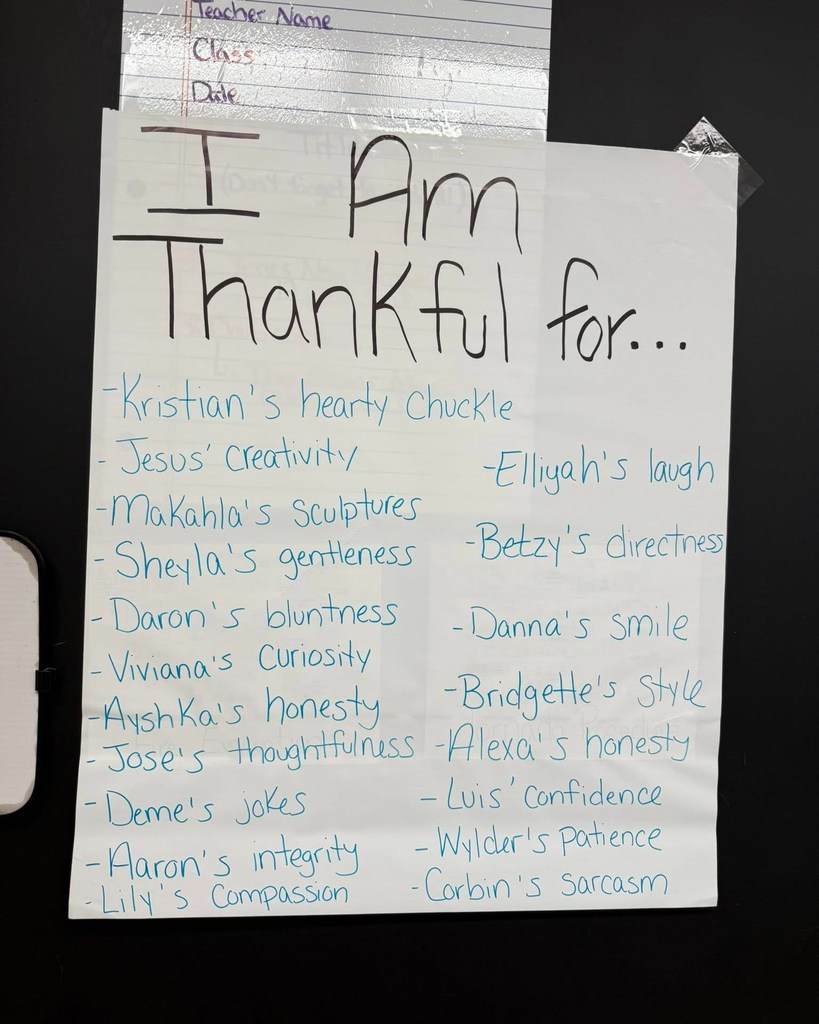 Teacher Name
Class
Date
I Am
Thankful for...
-Kristian's hearty chuckle
- Jesus' creativity
-Makahla's sculptures
- Sheyla's gentleness
- Daron's bluntness
- Viviana's curiosity
-Ayshka's honesty
- Jose's thoughtfulness
- Deme's jokes
- Aaron's integrity
- Lily's compassion
-Elliyah's laugh
-Betzy's directness
-Danna's smile
-Bridgette's style
-Alexa's honesty
- Luis' confidence
-Wylder's patience
-Corbin's sarcasm